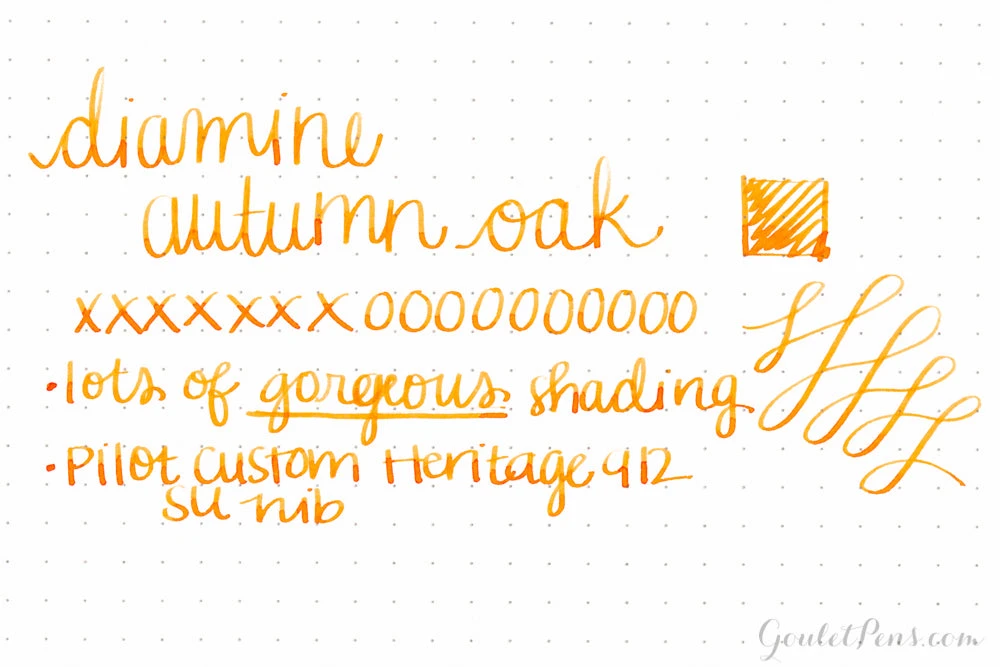 diamine
autumn oak
xxxxxxxOOOOOOOOOO
• lots of gorgeous shading
• Pilot Custom Heritage 912
SU nib
GouletPens.com